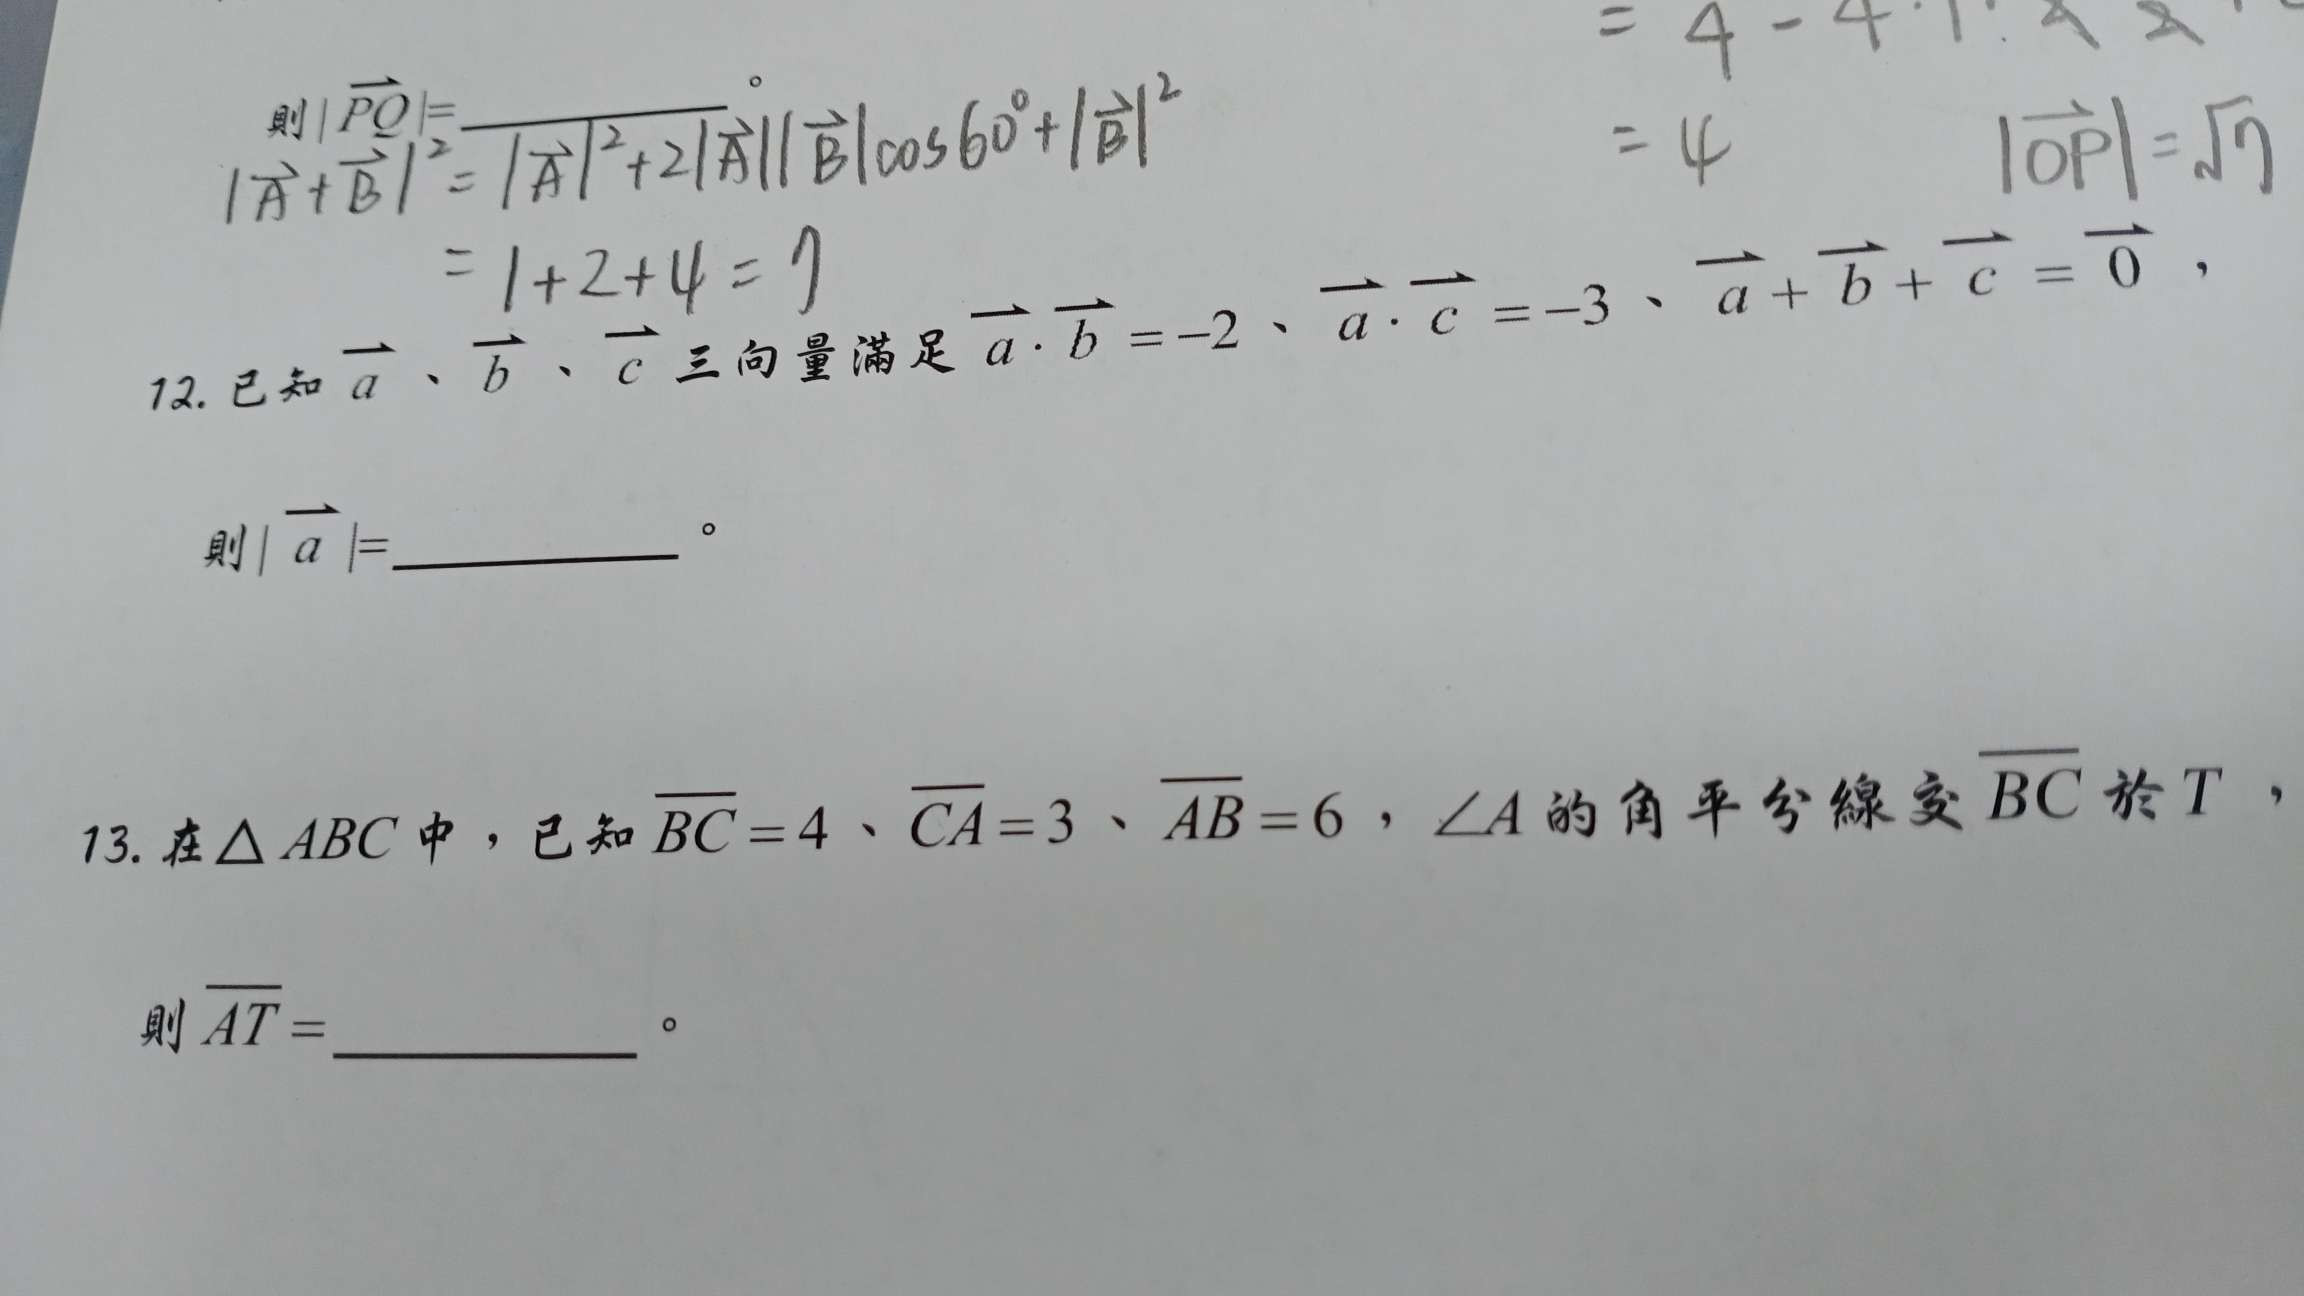 = 4 - 4
則|PQ|=________。
|A+B|² = |A|²+2|A||B|cos60°+|B|²
= 4
|OP| = √7
= 1+2+4 = 7
12. 已知 a、b、c 三向量滿足 a·b=-2、a·c=-3、a+b+c=0,
則|a|=________。
13. 在△ABC中,已知BC=4、CA=3、AB=6,∠A的角平分線交BC於T,
則AT=________。